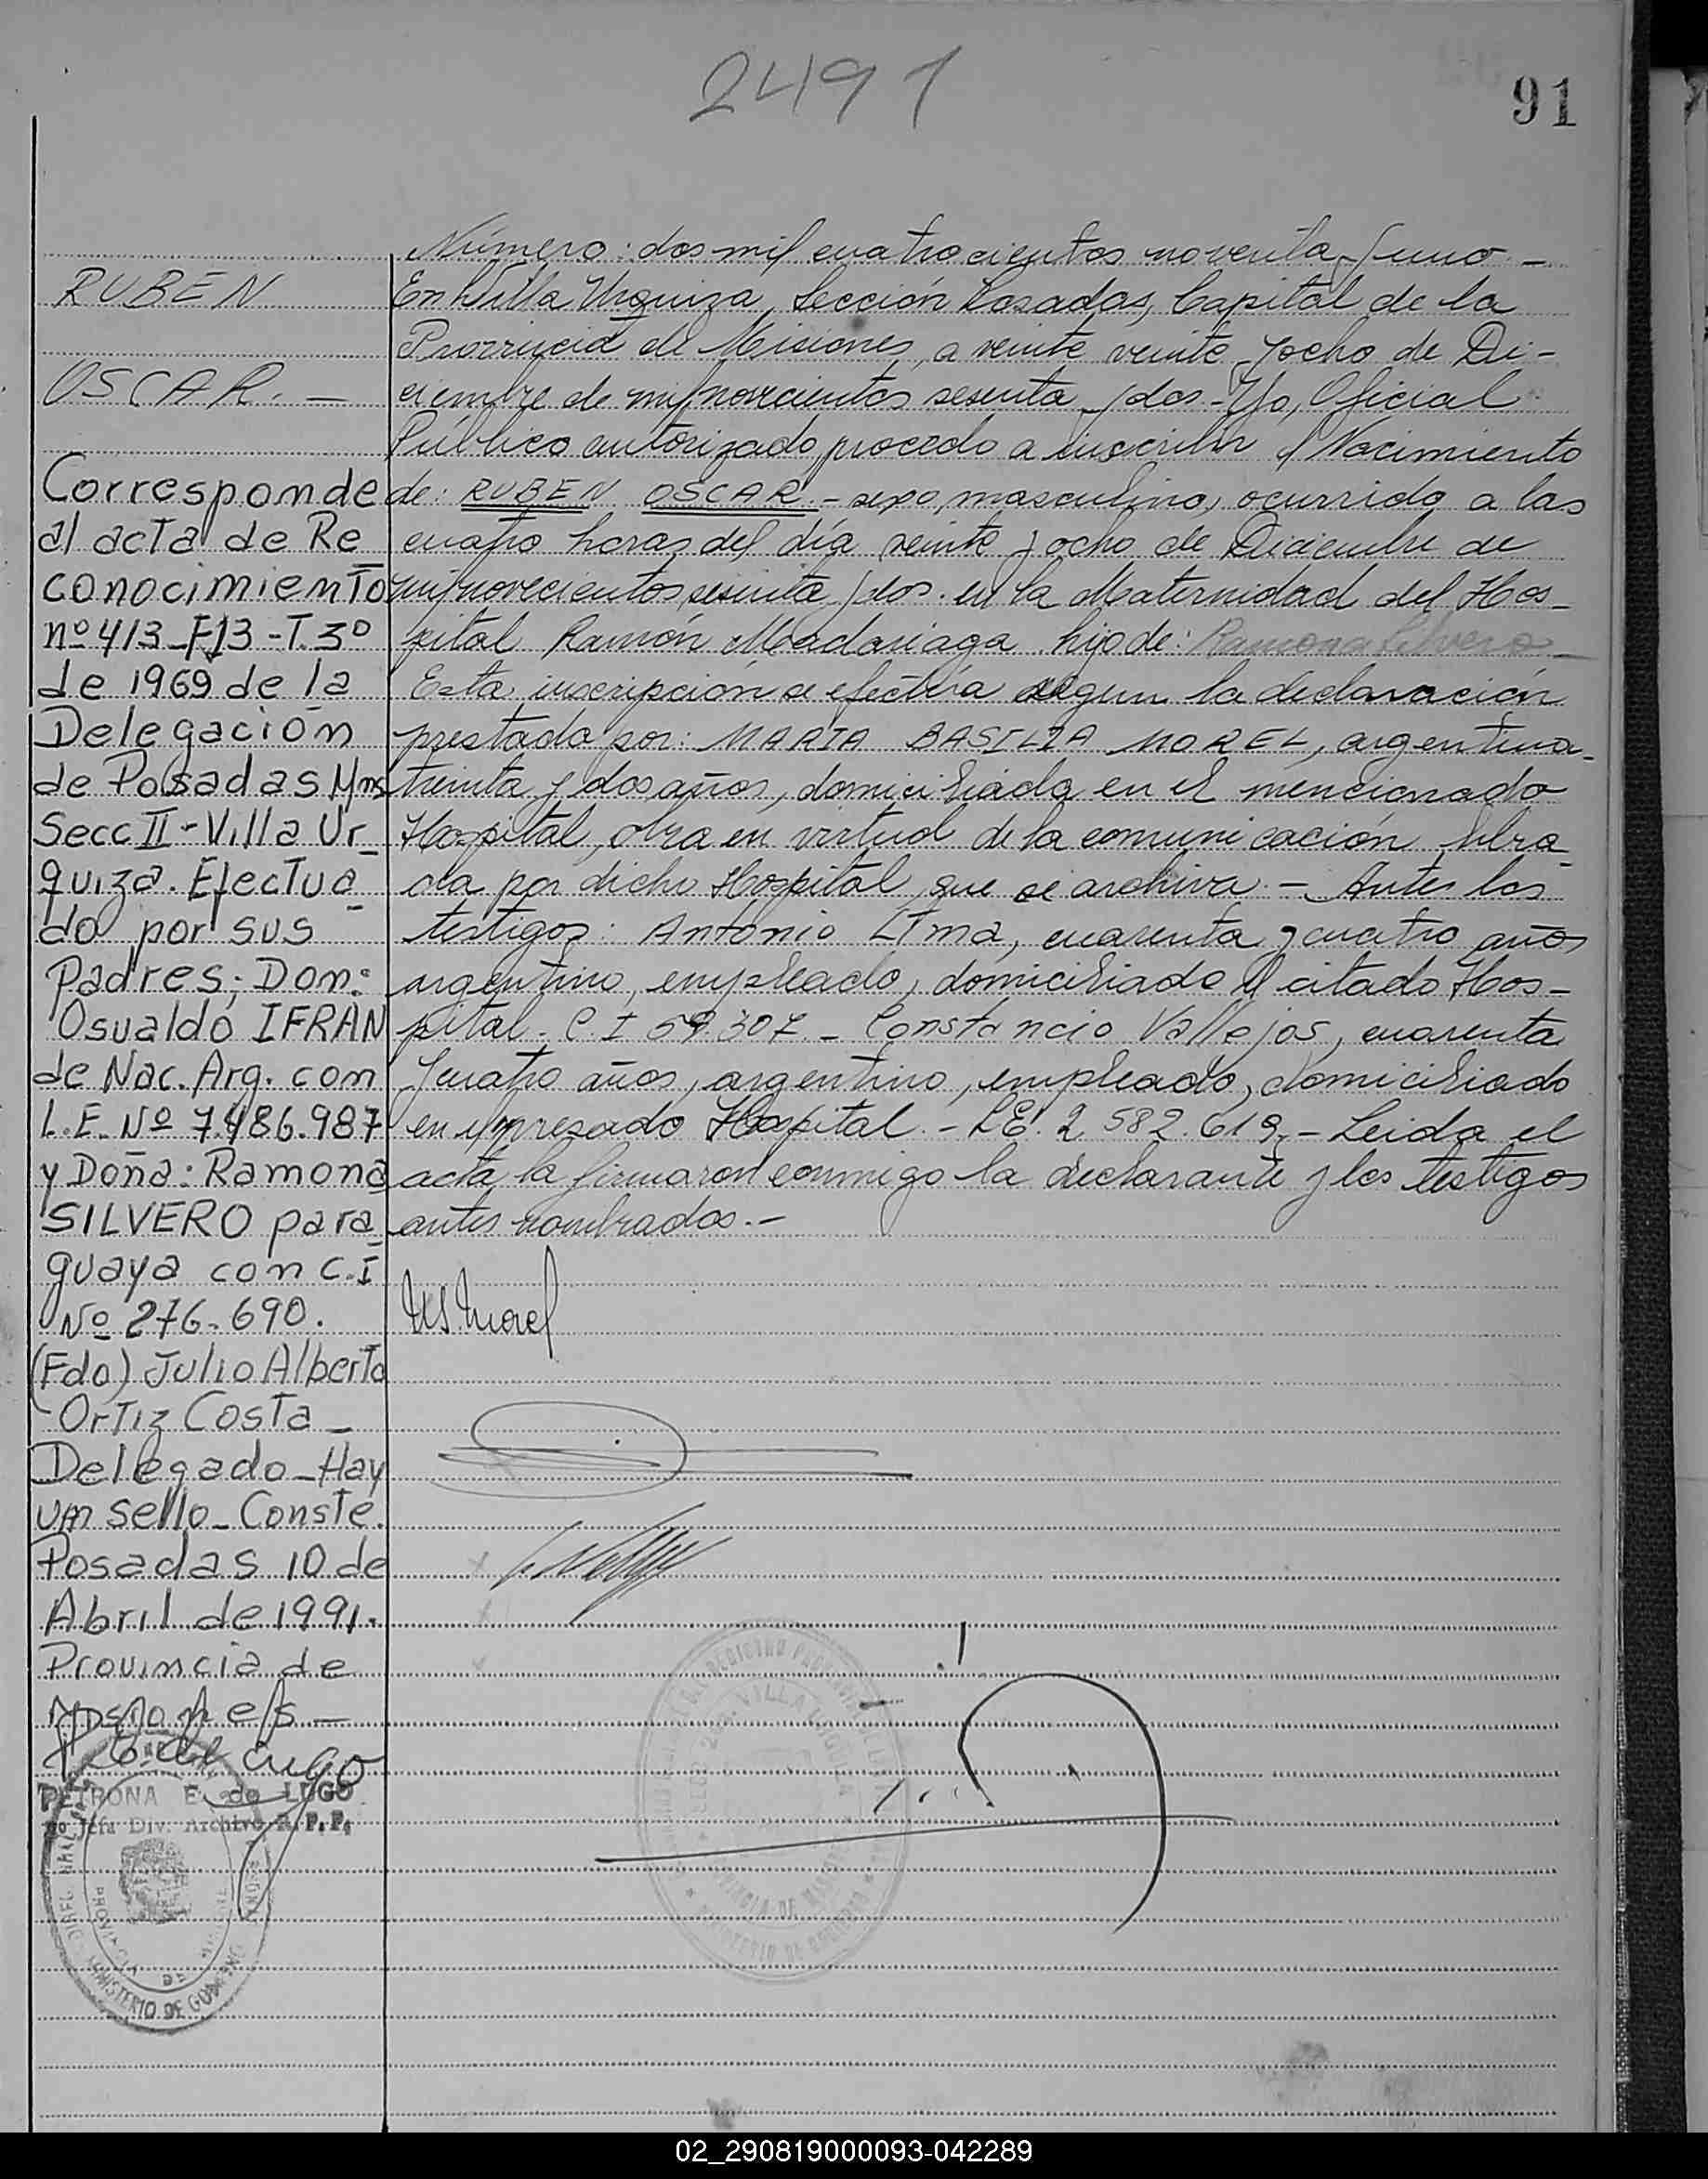 2491
91
RUBEN
OSCAR. —
Corresponde
al acta de Re
conocimiento
nº 413-F13-T.3º
de 1969 de la
Delegación
de Posadas Mns
Secc II - Villa Ur_
quiza. Efectua_
do por sus
Padres; Don:
Osualdo IFRAN
de Nac. Arg. con
L.E. Nº 7.486.987
y Doña: Ramona
SILVERO para_
guaya con C.I
Nº 276.690.
(Fdo) Julio Alberto
Ortiz Costa _
Delegado_Hay
un sello_Conste.
Posadas 10 de
Abril de 1991.
Provincia de
PETRONA E. de LUGO
Jefa Div. Archivo R. P. P.
MINISTERIO DE GOBIERNO
Número: dos mil cuatrocientos noventa y uno. —
En Villa Urquiza, Sección Posadas, Capital de la
Provincia de Misiones, a veinte veinte y ocho de Di-
ciembre de mil novecientos sesenta y dos - Yo, Oficial
Público autorizado, procedo a inscribir el Nacimiento
de: RUBEN OSCAR. - sexo, masculino, ocurrido a las
cuatro horas del día veinte y ocho de Diciembre de
mil novecientos sesenta y dos. en la Maternidad del Hos_
pital Ramón Madariaga hijo de: Ramona Silvero _
Esta inscripción se efectúa segun la declaración
prestada por: MARTA BASILIA MOREL, argentina_
treinta y dos años, domiciliada en el mencionado
Hospital, obra en virtud de la comunicación libra_
da por dicho Hospital que se archiva. — Antes los
testigos: Antonio Lima, cuarenta y cuatro años
argentino, empleado, domiciliado el citado Hos_
pital. C. I 59.307. - Constancio Vallejos, cuarenta
y cuatro años, argentino, empleado, domiciliado
en expresado Hospital. - L.E. 2.582.619. - Leida el
acta la firmaron conmigo la declarante y los testigos
antes nombrados. -
Morel
02_290819000093-042289